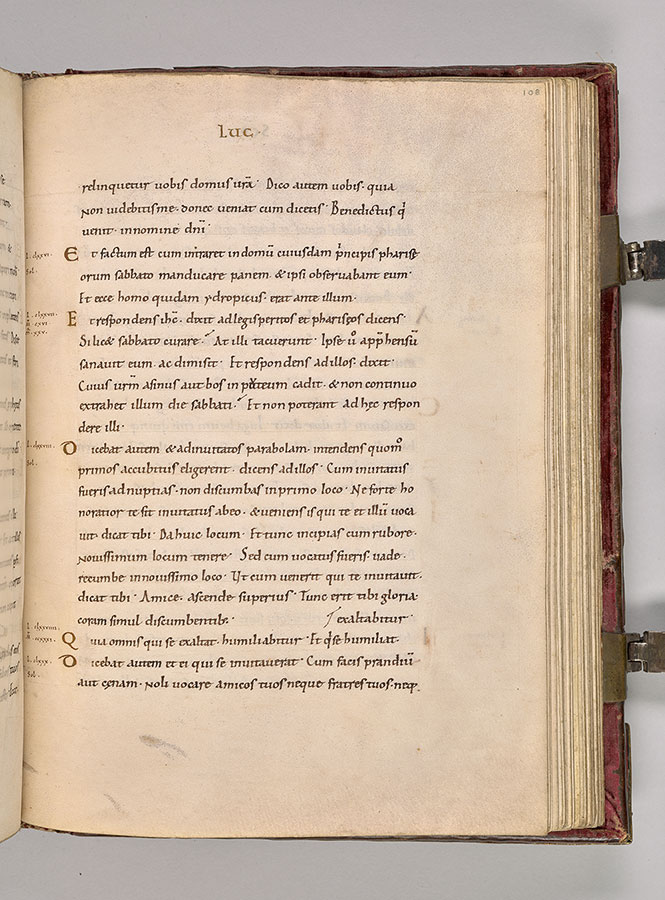 108
LUC·
relinquetur uobis domus ura͞· Dico autem uobis· quia
non uidebitis me· donec ueniat cum dicetis· Benedictus q̇
uenit· in nomine dni͞·
Et factum est cum intraret in domū cuiusdam p̍ncipis pharise
orum sabbato manducare panem· & ipsi obseruabant eum·
Et ecce homo quidam ydropicus· erat ante illum·
Et respondens ihc͞· dixit ad legisperitos et phariseos dicens·
Si lic& sabbato curare· At illi tacuerunt· Ipse ů app͞hensū
sanauit eum· ac dimisit· Et respondens ad illos· dixit·
Cuius urm͞ asinus aut bos in puteum cadit· & non continuo
extrahet illum die sabbati· Et non poterant ad hęc respon
dere illi·
Dicebat autem & ad inuitatos parabolam· intendens quom̊
primos accubitus eligerent· dicens ad illos· Cum inuitatus
fueris ad nuptias· non discumbas in primo loco· Ne forte ho
noratior te sit inuitatus ab eo· & ueniens is qui te et illū uoca
uit· dicat tibi· Da huic locum· Et tunc incipias cum rubore·
nouissimum locum tenere· Sed cum uocatus fueris· uade·
recumbe in nouissimo loco· Ut cum uenerit qui te inuitauit·
dicat tibi· Amice· ascende superius· Tunc erit tibi gloria·
coram simul discumbentib;· exaltabitur·
Quia omnis qui se exaltat· humiliabitur· Et q̍ se humiliat·
Dicebat autem et ei qui se inuitauerat· Cum facis prandiū
aut cęnam· noli uocare amicos tuos neque fratres tuos· neq·